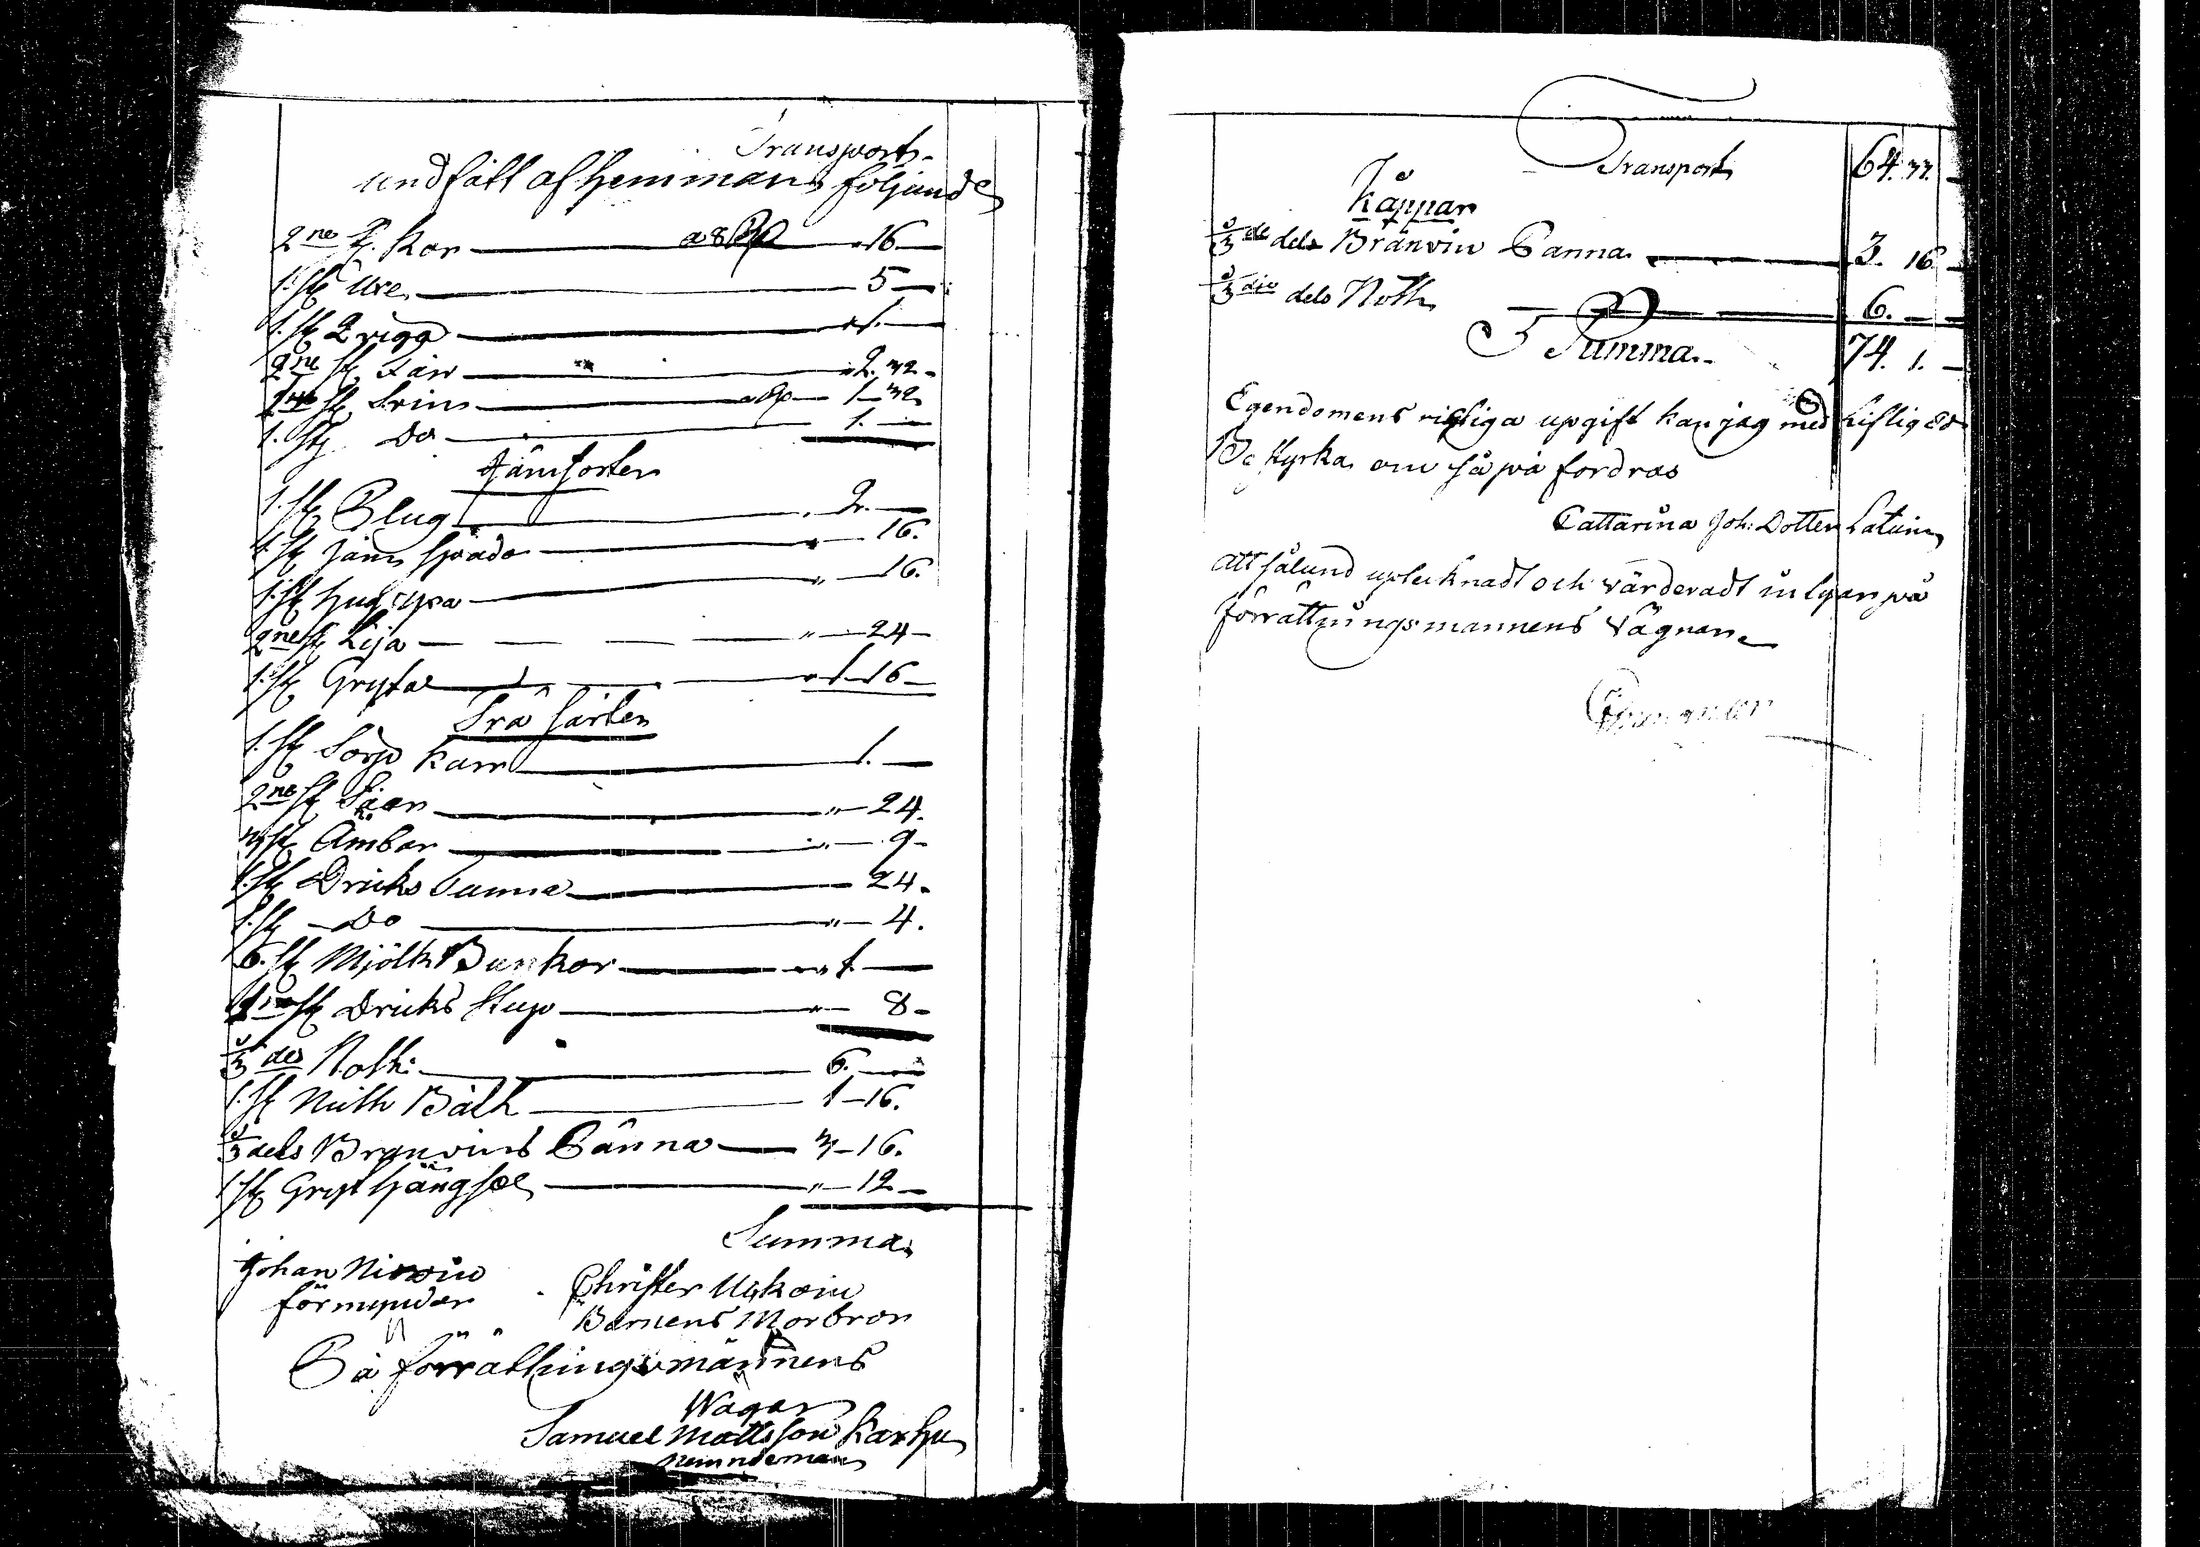 Transport
undfått af hemmans foljande
2ne st. Kor a 8 Rp 16
1. st Uxe 5
1. st Qvigo 1.
2ne st. Får 2. 32
st. Svin 1 32
1. st Do 1.
Järnsorter
1. st Plug 2.
1. st järn spade 16.
1. st hug yxa 16.
2ne st Lija 24
1. st Gryta 1 16
Trä Särker
1. st Sörp karr 1.
2ne st Såar 24.
3 st Ämbar 9
1. st Dricks Tunna 24.
1. st Do 4.
6. st Mjölk Bunkar 1.
st Dricks Stup 8
1/3 des Noth 6.
1. st Noth Båth 1 16.
1/3 dels Bränvins Panna 3 16.
1 st Gryt hängsel 12
Summa
Johan
förmyndar
Christer Uskoin
Barnens Morbror
På förrättningsmännens
Wägar
Samuel Mattsson Karhu
Nemndeman
Transport 64. 33.
Kåppar
1/3 de dels Bränvin Panna 3. 16
1/3 dio dels Noth 6.
Summa 74. 1.
Egendomens rigtiga upgift kan jag med Liflig Ed
Be styrka om så på fordras
Cattarina Joh: Dotter Latuin
Att sålund uptecknadt och värderadt intygar på
förrättningsmannens Vägnar